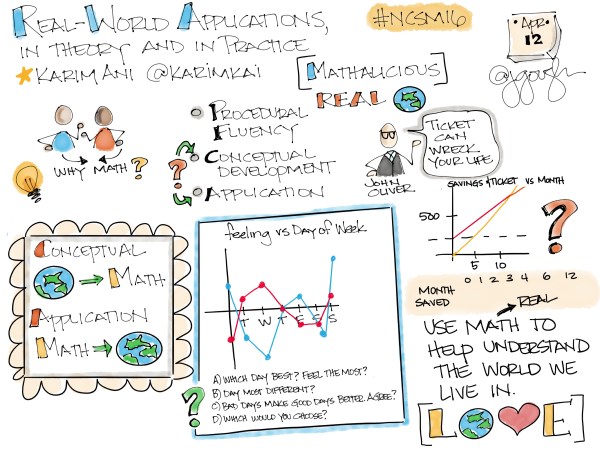 REAL-WORLD APPLICATIONS,
IN THEORY AND IN PRACTICE
KARIM ANI @KARIMKAI
#NCSM16
APR
12
[MATHALICIOUS]
REAL
WHY MATH?
PROCEDURAL
FLUENCY
?
CONCEPTUAL
DEVELOPMENT
APPLICATION
JOHN
OLIVER
TICKET
CAN
WRECK
YOUR LIFE
SAVINGS & TICKET VS MONTH
500
5 10
?
MONTH 0 1 2 3 4 6 12
SAVED
CONCEPTUAL
MATH
APPLICATION
MATH
feeling vs Day of Week
T W T F S S
A) WHICH DAY BEST? FEEL THE MOST?
B) DAY MOST DIFFERENT?
C) BAD DAYS MAKE GOOD DAYS BETTER. AGREE?
D) WHICH WOULD YOU CHOOSE?
?
REAL
USE MATH TO
HELP UNDERSTAND
THE WORLD WE
LIVE IN.
[L E]